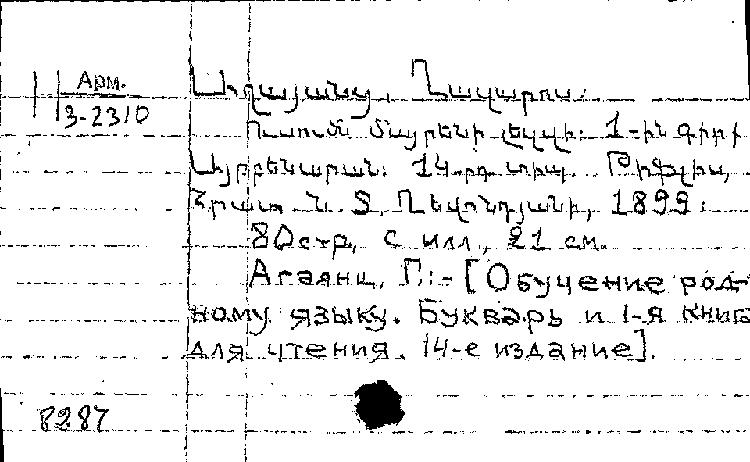 Арм.
3-2310
Աղայանց, Ղազարոս.
Ուսումն մայրենի լեզվի: 1-ին գիրք
Այբբենարան: 14-րդ տիպ. Թիֆլիս,
Հրատ. Տ. Ղեվոնդյանի, 1899:
80стр, с илл., 21 см.
Агаянц, Г.:- [Обучение род-
ному языку. Букварь и 1-я книга
для чтения. 14-е издание].
8287